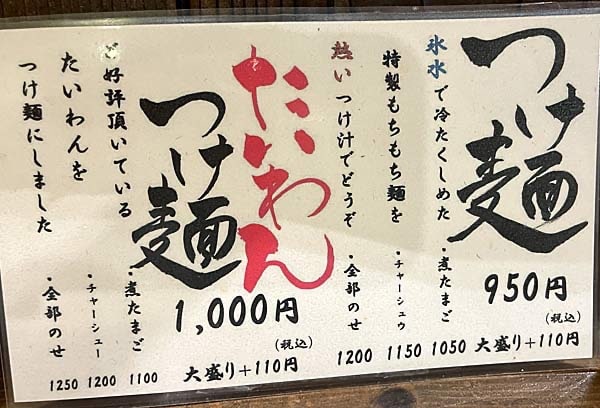 つけ麺
950円
(税込)
大盛り+110円
氷水で冷たくしめた
特製もちもち麺を
熱いつけ汁でどうぞ
・煮たまご 1050
・チャーシュウ 1150
・全部のせ 1200
たいわん
つけ麺
1,000円
(税込)
大盛り+110円
ご好評頂いている
たいわんを
つけ麺にしました
・煮たまご 1100
・チャーシュー 1200
・全部のせ 1250